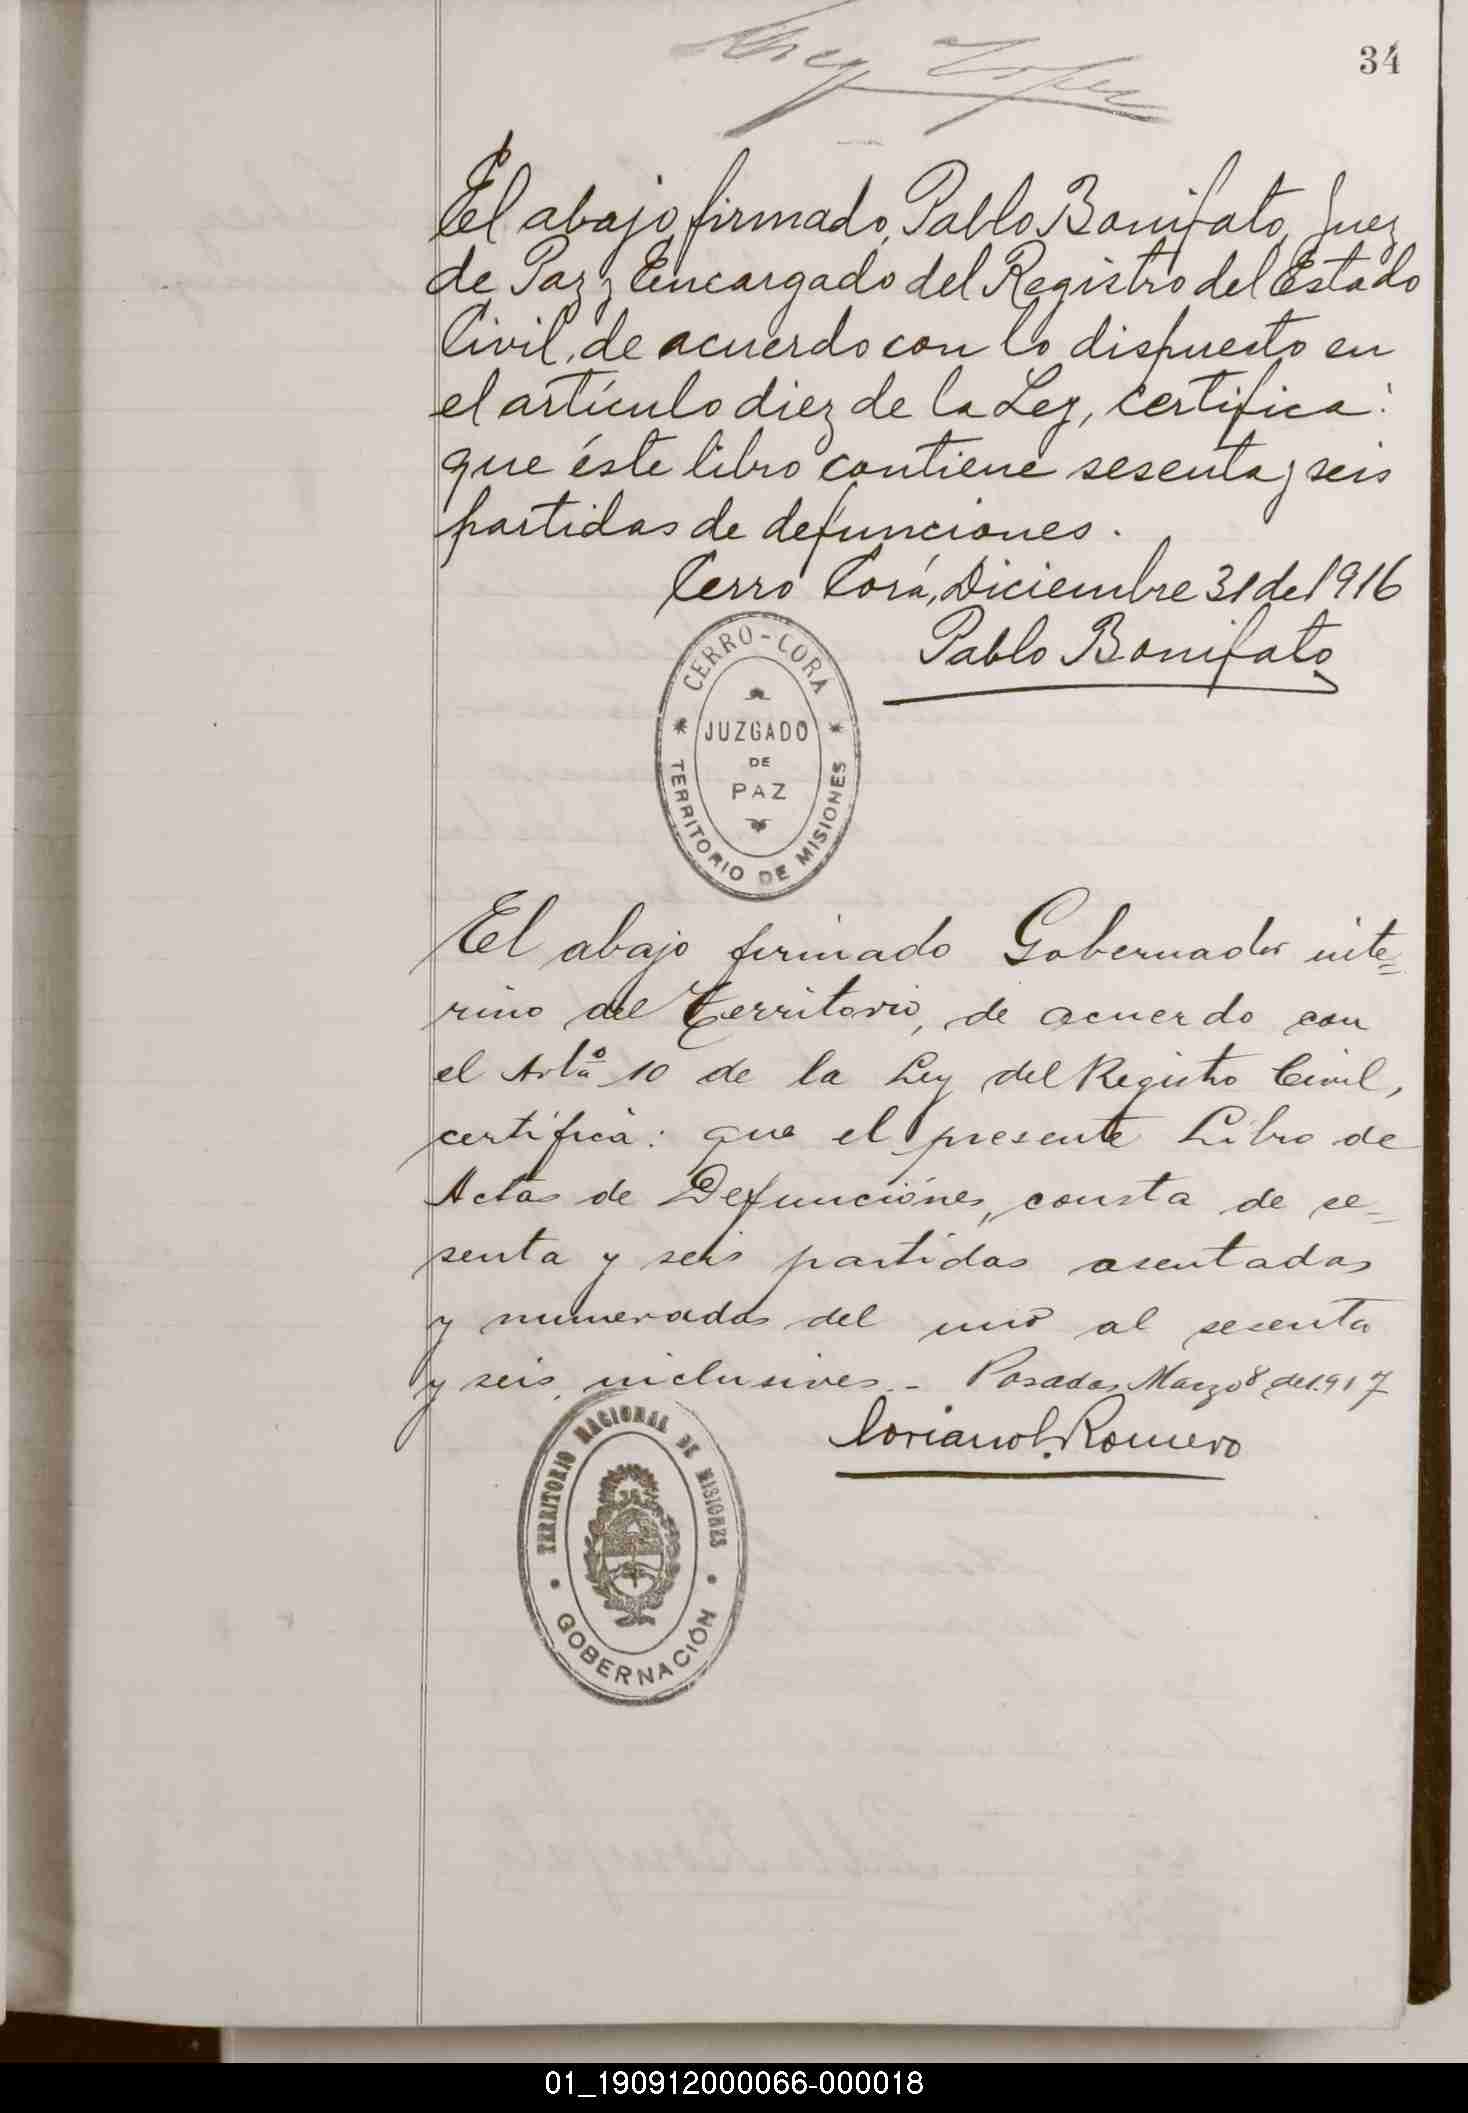 34
El abajo firmado, Pablo Bonifato, Juez
de Paz y Encargado del Registro del Estado
Civil, de acuerdo con lo dispuesto en
el artículo diez de la Ley, certifica:
que éste libro contiene sesenta y seis
partidas de defunciones.
Cerro Corá, Diciembre 31 de 1916
Pablo Bonifato
CERRO-CORA
JUZGADO
DE
PAZ
TERRITORIO DE MISIONES
El abajo firmado Gobernador inte=
rino del Territorio, de acuerdo con
el Artº 10 de la Ley del Registro Civil,
certifica: que el presente Libro de
Actas de Defunciónes, consta de se=
senta y seis partidas asentadas
y numeradas del uno al sesenta
y seis inclusives.- Posadas, Marzo 8 de 1917
Romero
TERRITORIO NACIONAL DE MISIONES
GOBERNACIÓN
01_190912000066-000018